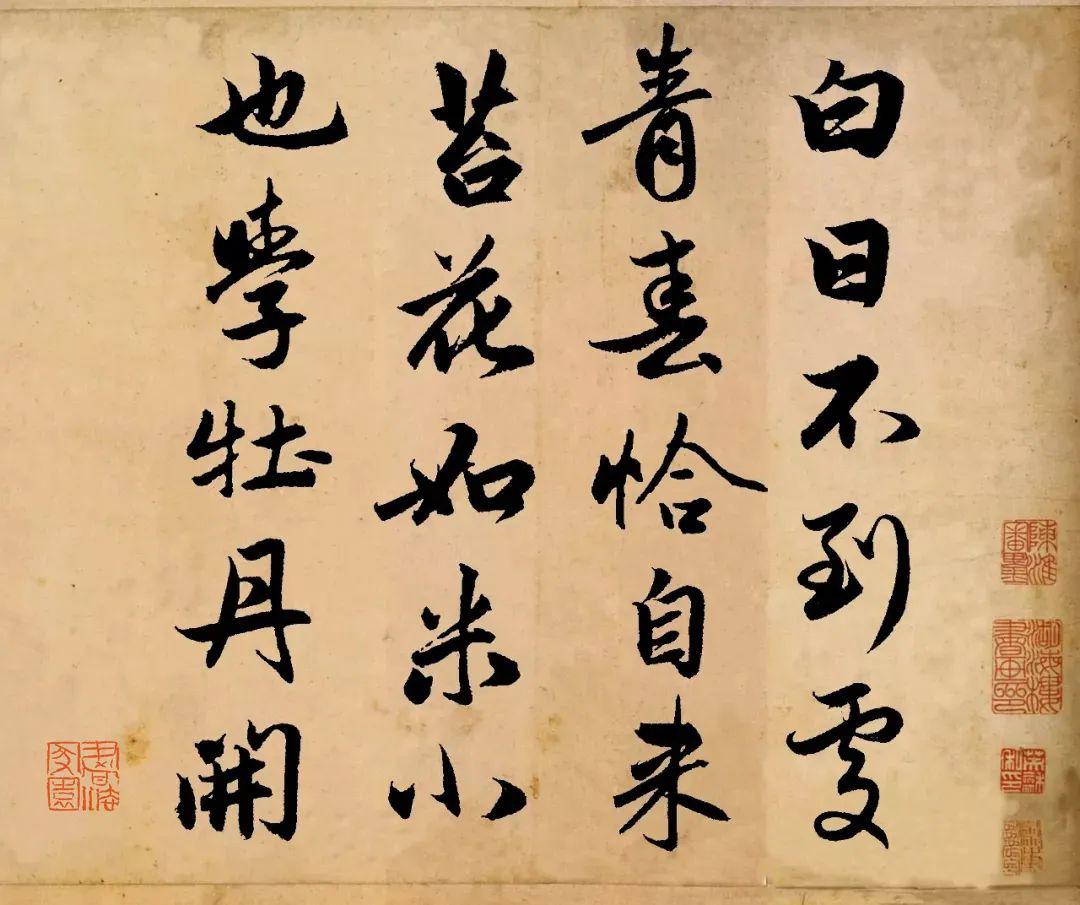 白日不到處
青春恰自来
苔花如米小
也學牡丹開